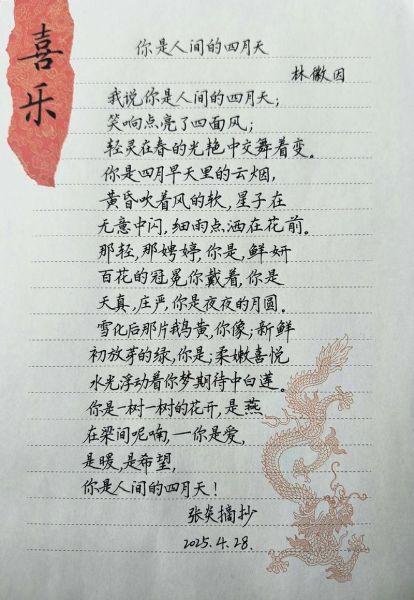 喜乐
你是人间的四月天
林徽因
我说你是人间的四月天；
笑响点亮了四面风；
轻灵在春的光艳中交舞着变。
你是四月早天里的云烟，
黄昏吹着风的软，星子在
无意中闪，细雨点洒在花前。
那轻，那娉婷，你是，鲜妍
百花的冠冕你戴着，你是
天真，庄严，你是夜夜的月圆。
雪化后那片鹅黄，你像；新鲜
初放芽的绿，你是；柔嫩喜悦
水光浮动着你梦期待中白莲。
你是一树一树的花开，是燕
在梁间呢喃，—你是爱，
是暖，是希望，
你是人间的四月天！
张炎摘抄
2025.4.28.